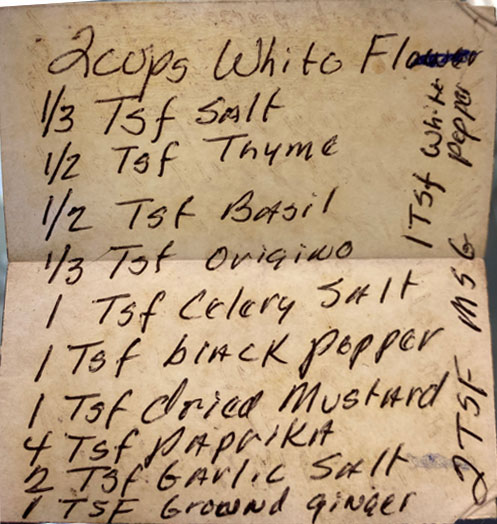 2 cups White Flower
1/3 Tsf Salt
1/2 Tsf Thyme
1/2 Tsf Basil
1/3 Tsf origino
1 Tsf Celery Salt
1 Tsf black pepper
1 Tsf dried Mustard
4 Tsf PAprikA
2 Tsf GArlic SAlt
1 TSF Ground ginger
1 Tsf White
pepper
2 TSF MSG